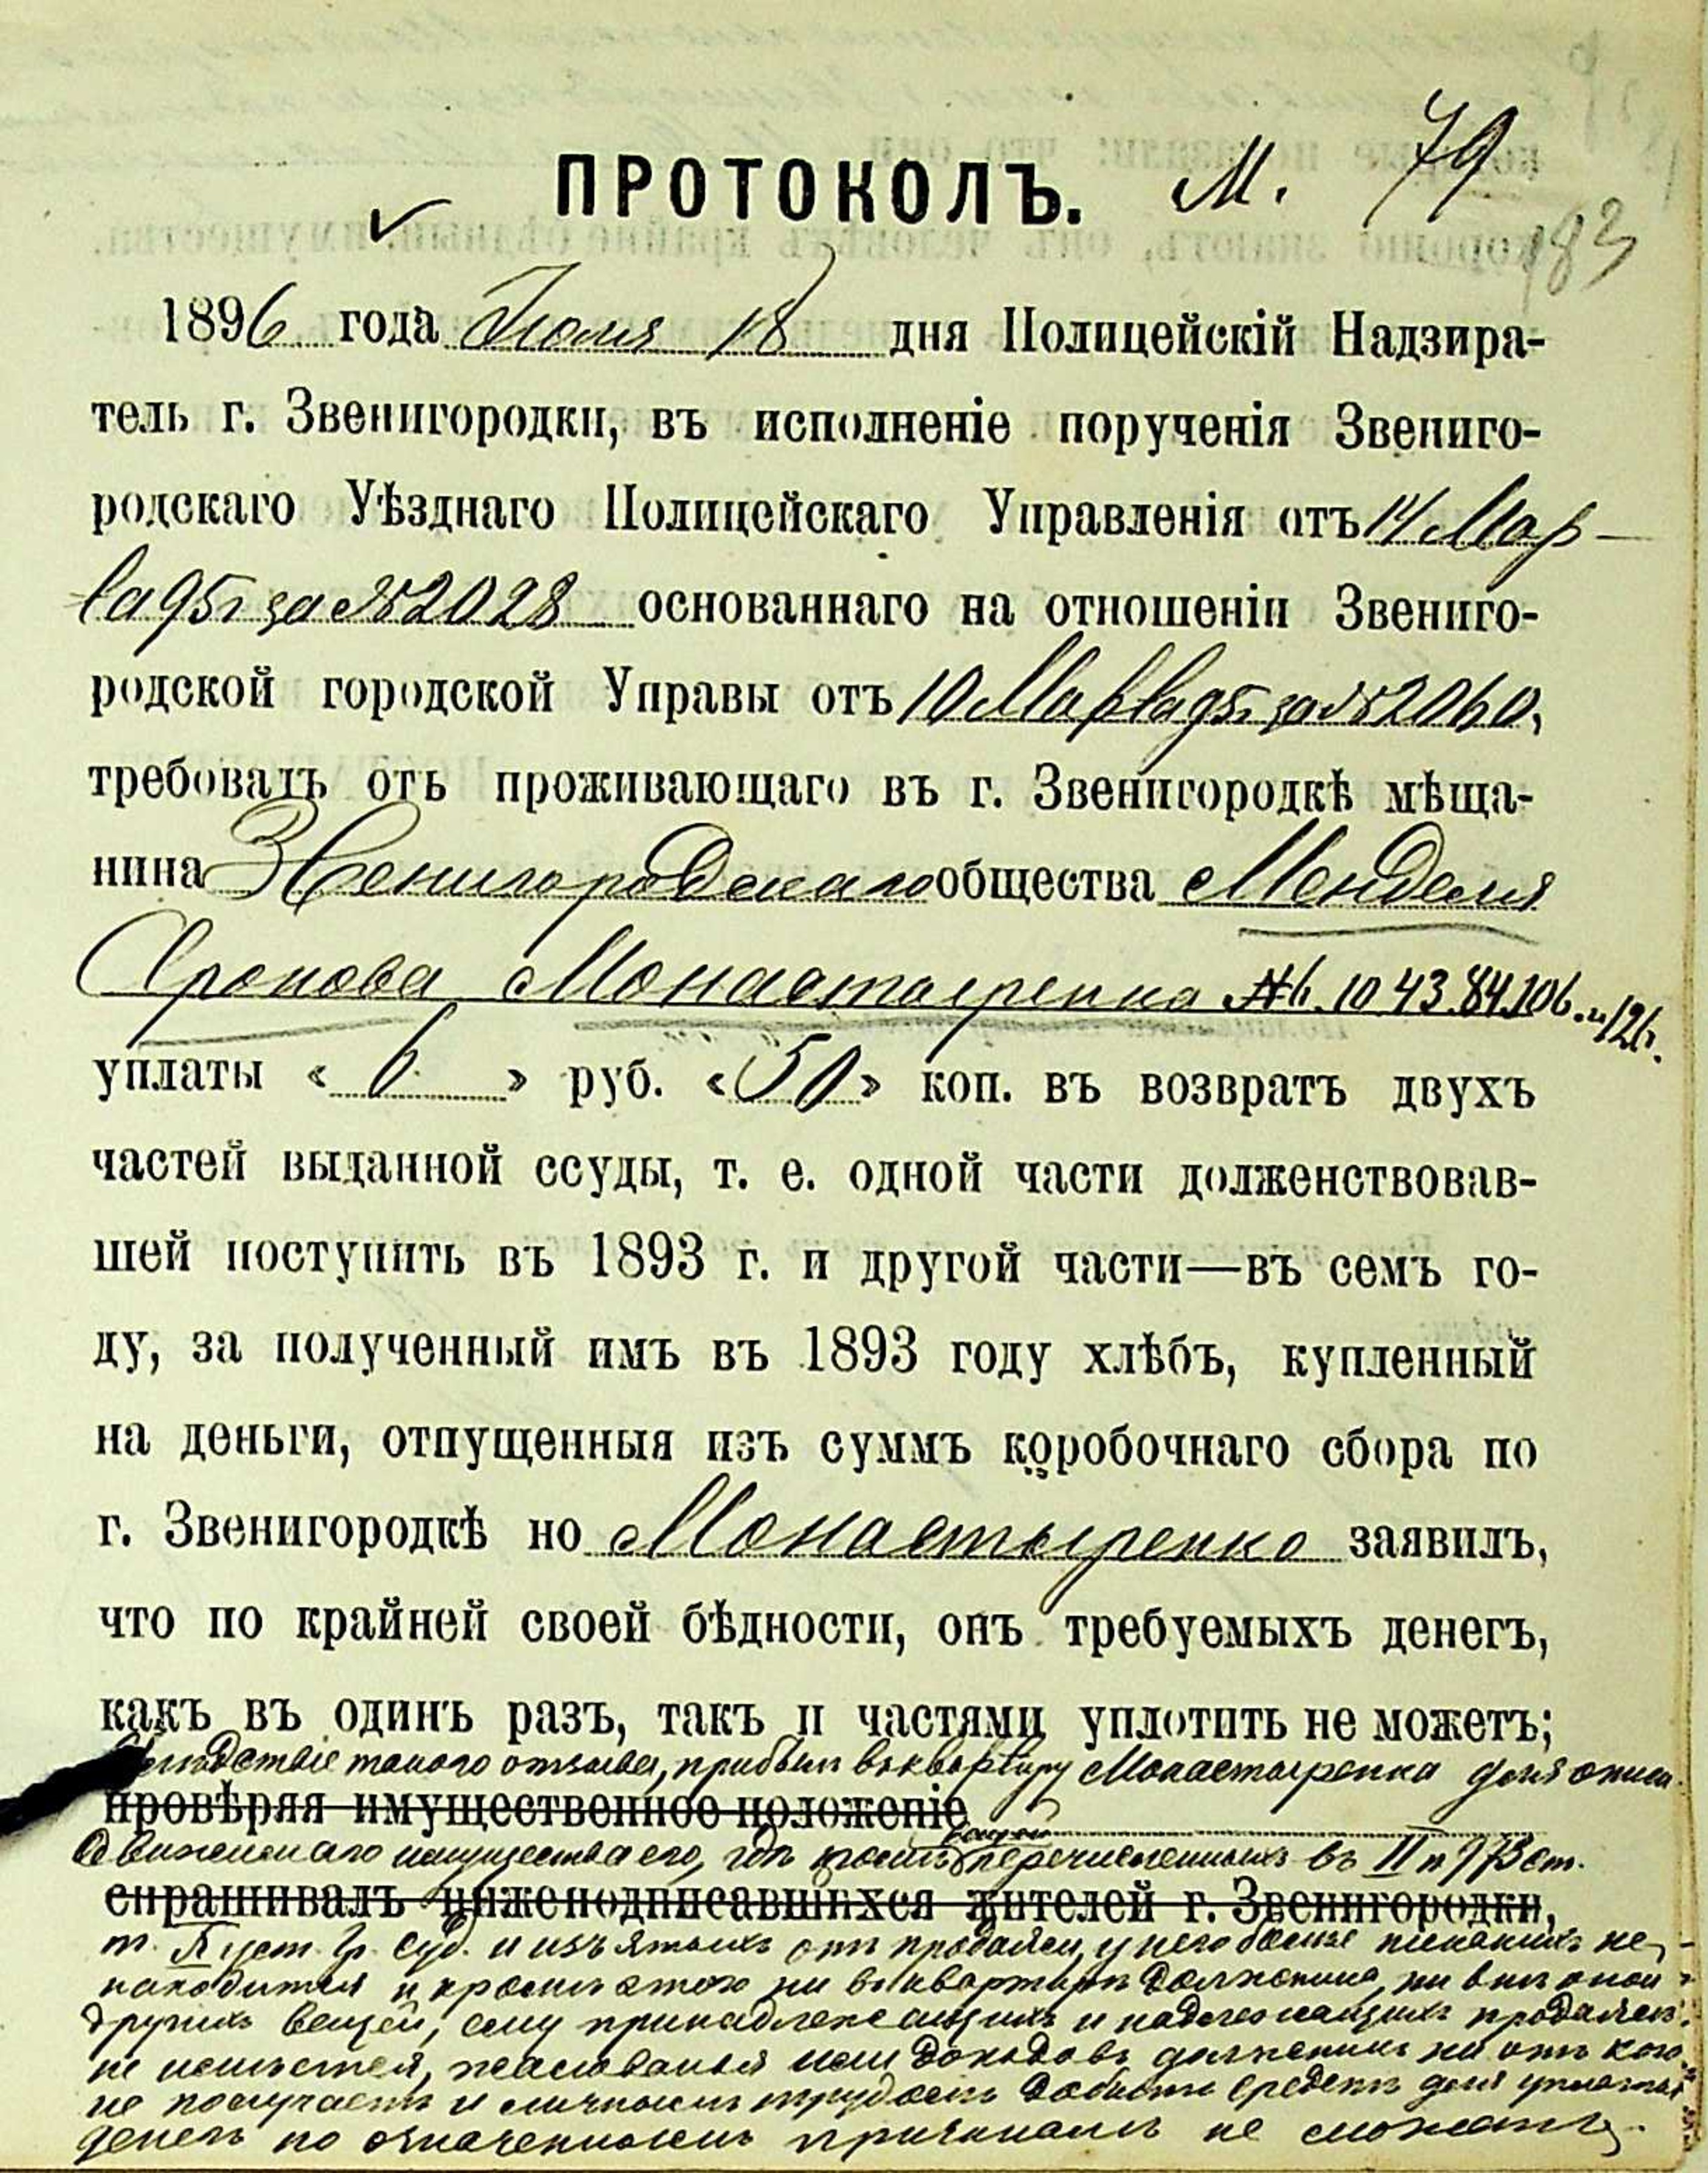 ПРОТОКОЛЪ. М. 79
183
1896 года Июля 18 дня Полицейскій Надзира-
тель г. Звенигородки, въ исполненіе порученія Звениго-
родскаго Уѣзднаго Полицейскаго Управленія отъ 14 Мар-
та 95 г за № 2028 основаннаго на отношеніи Звениго-
родской городской Управы отъ 10 Марта 95 г за № 2060,
требовалъ отъ проживающаго въ г. Звенигородкѣ мѣща-
нина Звенигородскаго общества Менделя
Аронова Монастыренка №6. 10 43. 84. 106. и 126.
уплаты « 6 » руб. « 50 » коп. въ возвратъ двухъ
частей выданной ссуды, т. е. одной части долженствовав-
шей поступить въ 1893 г. и другой части—въ семъ го-
ду, за полученный имъ въ 1893 году хлѣбъ, купленный
на деньги, отпущенныя изъ суммъ коробочнаго сбора по
г. Звенигородкѣ но Монастыренко заявилъ,
что по крайней своей бѣдности, онъ требуемыхъ денегъ,
какъ въ одинъ разъ, такъ и частями уплотить не можетъ;
Вслѣдствіе такого отзыва, прибылъ въ квартиру Монастыренка для описи
провѣряя имущественное положеніе
вещей
движимаго имущества его, гдѣ кромѣ перечисленныхъ въ II п 973 ст.
спрашивалъ нижеподписавшихся жителей г. Звенигородки,
т. X уст. Гр. Суд. и изъятыхъ отъ продажи, у него болѣе никакихъ не
находится и кромѣ этого ни въ квартирѣ должника, ни внѣ оной
другихъ вещей, ему принадлежащихъ и подлежащихъ продажѣ
не имѣется, жалованья или доходовъ должникъ ни отъ кого
не получаетъ и личнымъ трудомъ добыть средствъ для уплаты
денегъ по означеннымъ причинамъ не можетъ.